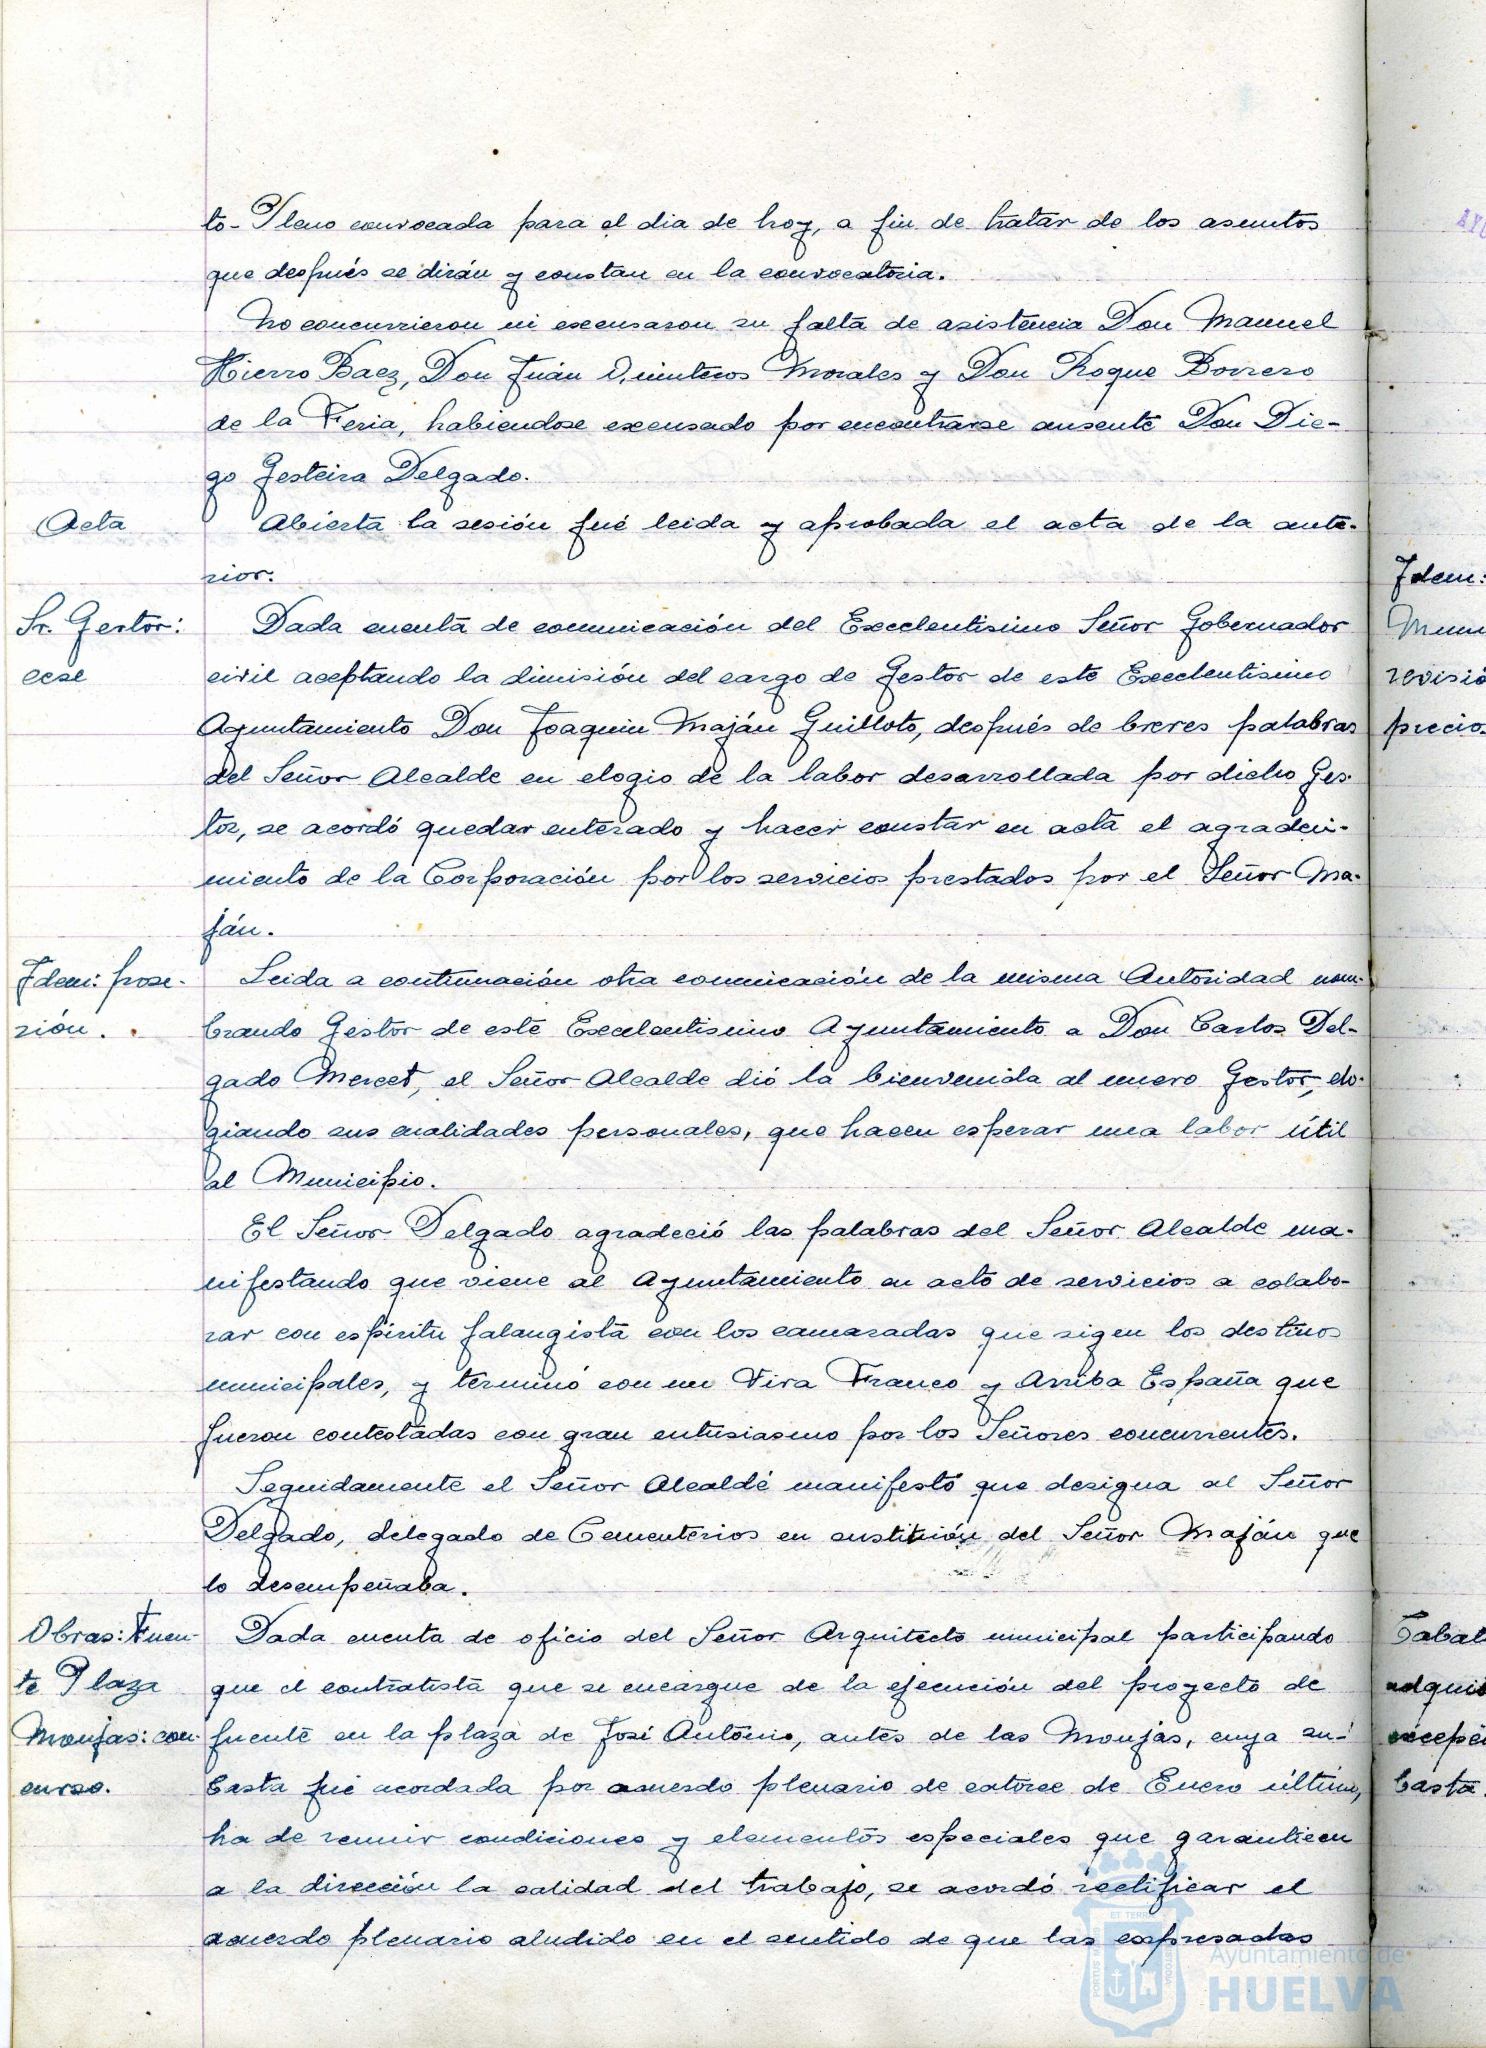 to-Pleno convocada para el dia de hoy, a fin de tratar de los asuntos
que después se dirán y constan en la convocatoria.
No concurrieron ni excusaron su falta de asistencia Don Manuel
Hierro Baez, Don Juán Quinteros Morales y Don Roque Borrero
de la Feria, habiendose excusado por encontrarse ausente Don Die-
go Gesteira Delgado.
Acta
Abierta la sesión fué leida y aprobada el acta de la ante-
rior.
Sr. Gestor:
cese
Dada cuenta de comunicación del Excelentisimo Señor Gobernador
civil aceptando la dimisión del cargo de Gestor de este Excelentisimo
Ayuntamiento Don Joaquin Maján Guilloto, después de breves palabras
del Señor Alcalde en elogio de la labor desarrollada por dicho Ges-
tor, se acordó quedar enterado y hacer constar en acta el agradeci-
miento de la Corporación por los servicios prestados por el Señor Ma-
ján.
Idem: pose-
sión.
Leida a continuación otra comunicación de la misma Autoridad nom-
brando Gestor de este Excelentisimo Ayuntamiento a Don Carlos Del-
gado Mercet, el Señor Alcalde dió la bienvenida al nuevo Gestor, elo-
giando sus cualidades personales, que hacen esperar una labor útil
al Municipio.
El Señor Delgado agradeció las palabras del Señor Alcalde ma-
nifestando que viene al Ayuntamiento en acto de servicios a colabo-
rar con espíritu falangista con los camaradas que rigen los destinos
municipales, y terminó con un Viva Franco y Arriba España que
fueron contestadas con gran entusiasmo por los Señores concurrentes.
Seguidamente el Señor Alcalde manifestó que designa al Señor
Delgado, delegado de Cementerios en sustitución del Señor Maján que
lo desempeñaba.
Obras: Fuen-
te Plaza
Monjas: con-
curso.
Dada cuenta de oficio del Señor Arquitecto municipal participando
que el contratista que se encargue de la ejecución del proyecto de
fuente en la plaza de José Antonio, antes de las Monjas, cuya su-
basta fué acordada por acuerdo plenario de catorce de Enero último,
ha de reunir condiciones y elementos especiales que garanticen
a la dirección la calidad del trabajo, se acordó rectificar el
acuerdo plenario aludido en el sentido de que las expresadas
Idem:
revisió
precio
adquis
basta.
Ayuntamiento de
HUELVA